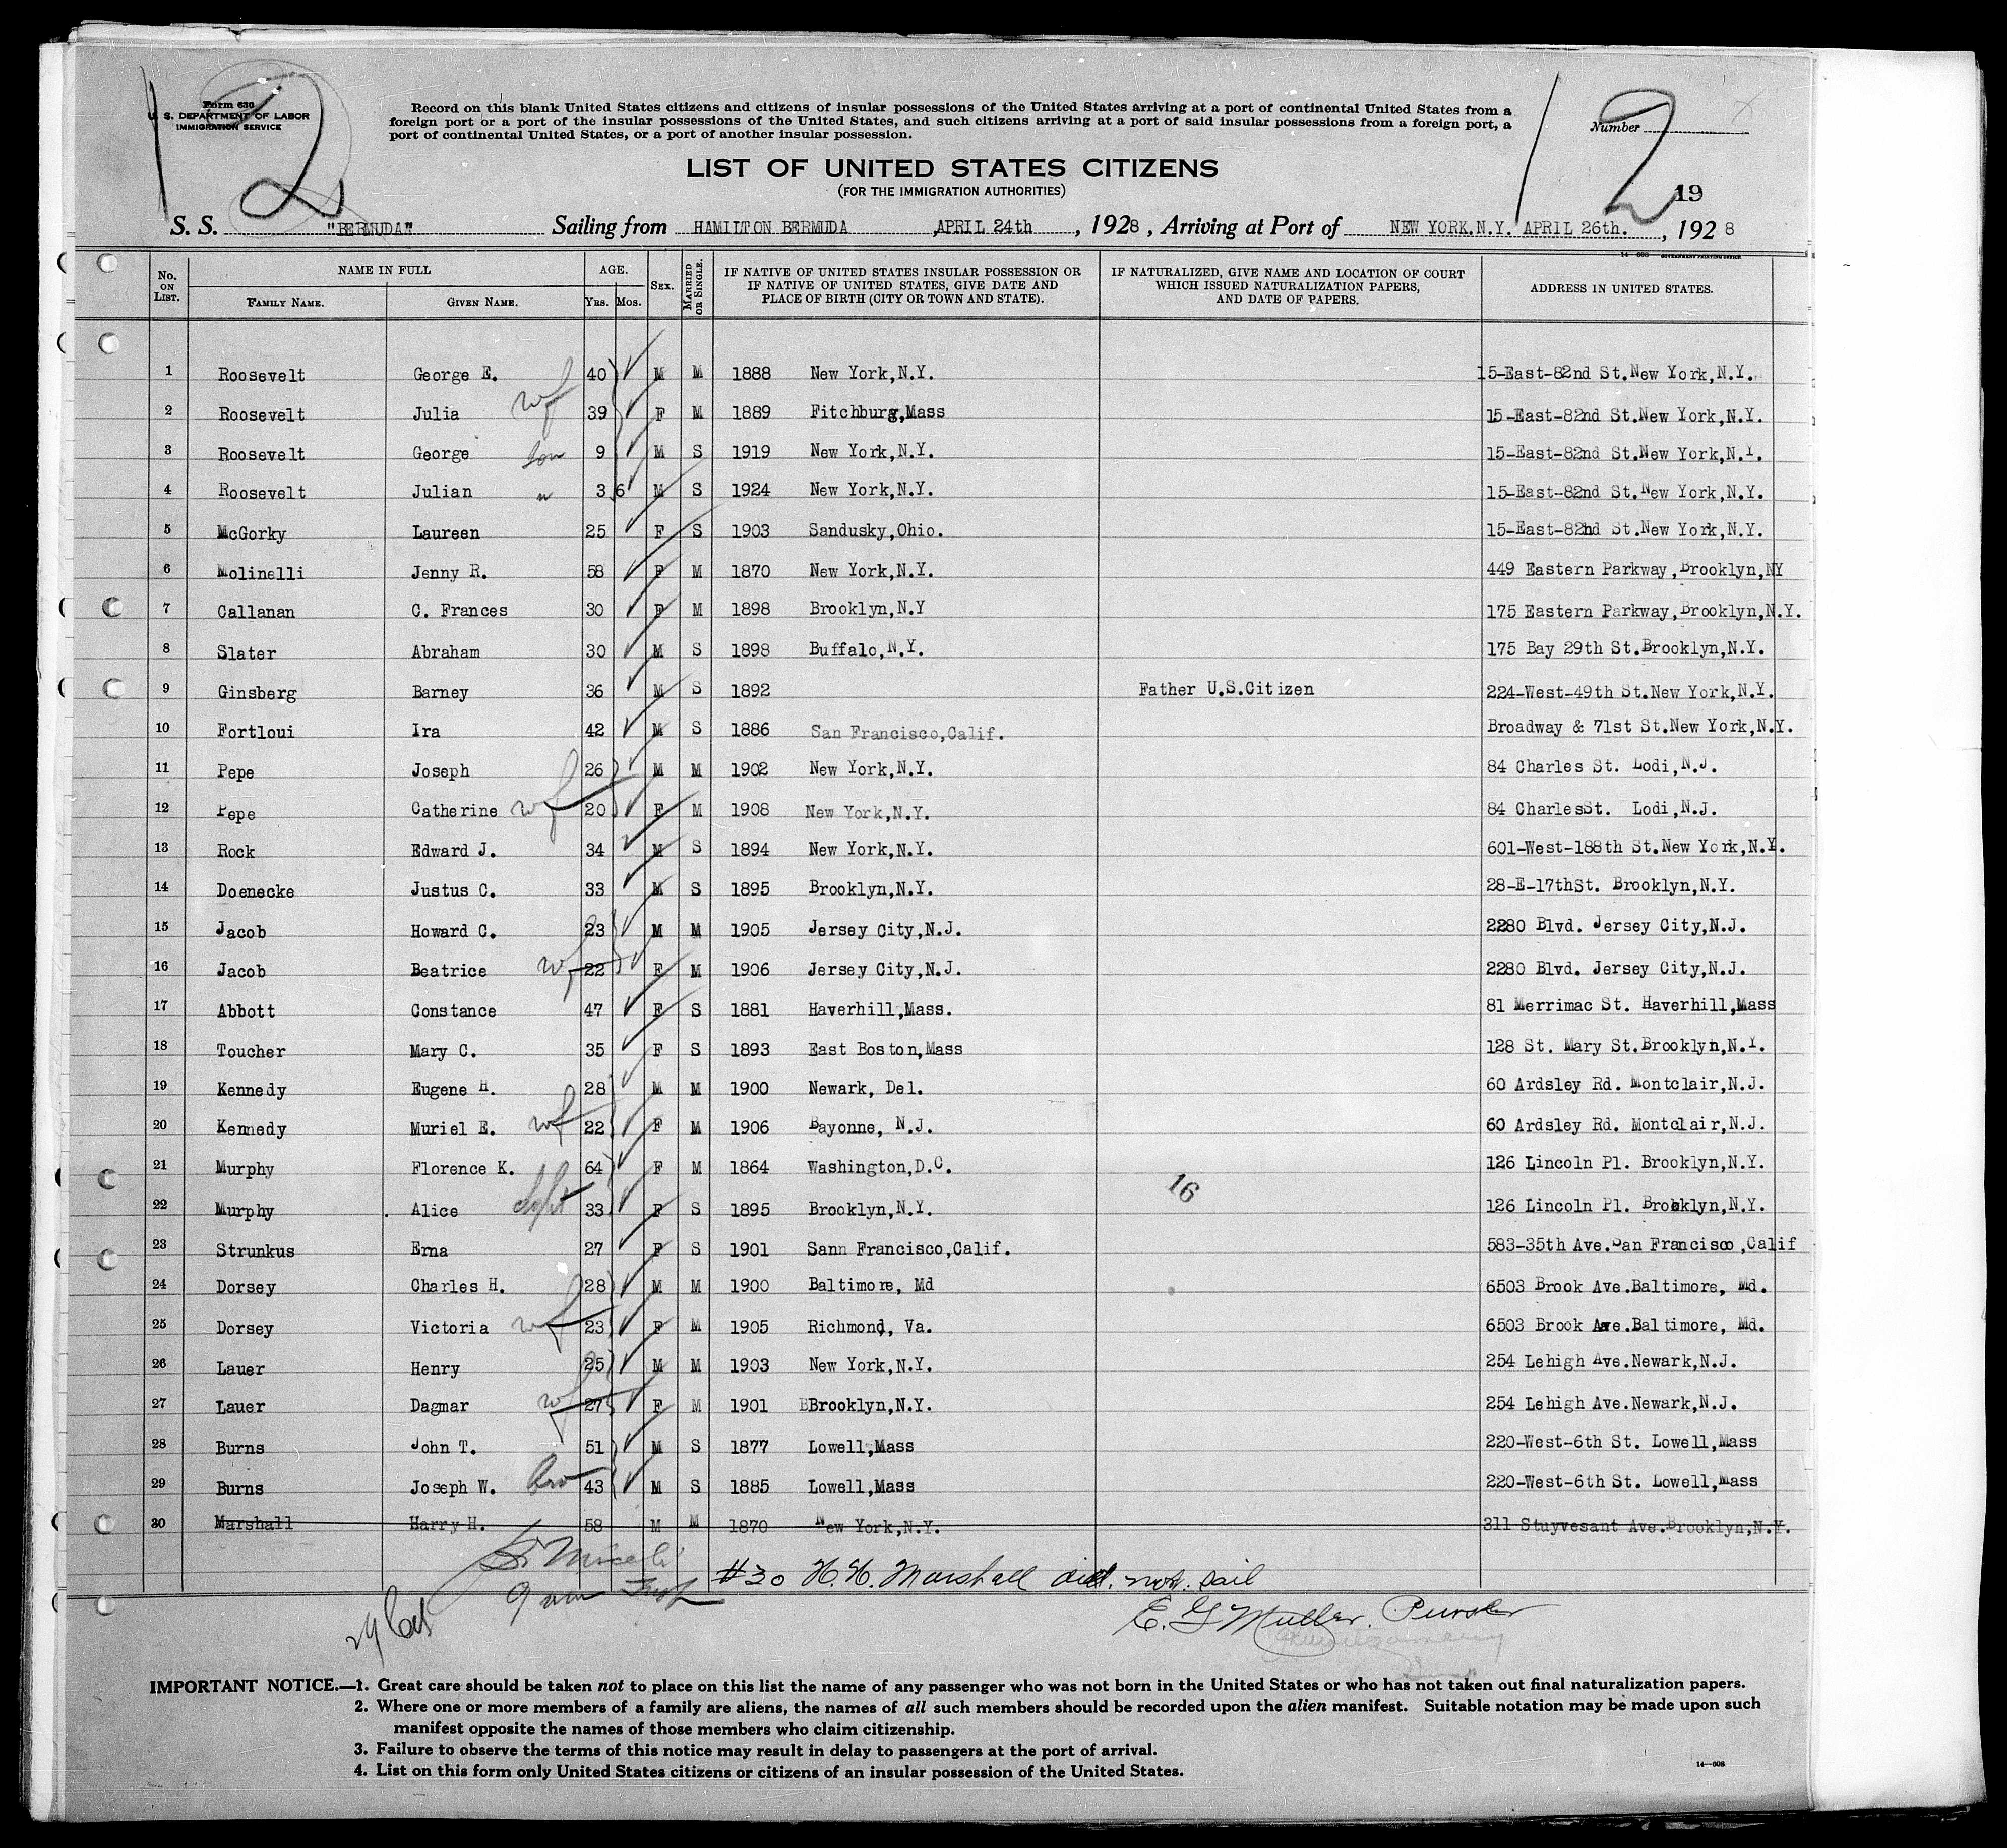 12
Form 630
U. S. DEPARTMENT OF LABOR
IMMIGRATION SERVICE
Record on this blank United States citizens and citizens of insular possessions of the United States arriving at a port of continental United States from a
foreign port or a port of the insular possessions of the United States, and such citizens arriving at a port of said insular possessions from a foreign port, a
port of continental United States, or a port of another insular possession.
Number
12
LIST OF UNITED STATES CITIZENS
(FOR THE IMMIGRATION AUTHORITIES)
19
S. S. "BERMUDA" Sailing from HAMILTON BERMUDA ,APRIL 24th , 1928, Arriving at Port of NEW YORK.N.Y. APRIL 26th. , 1928
14—608 GOVERNMENT PRINTING OFFICE
No. ON LIST. NAME IN FULL FAMILY NAME. GIVEN NAME. AGE. YRS. MOS. SEX. MARRIED OR SINGLE. IF NATIVE OF UNITED STATES INSULAR POSSESSION OR IF NATIVE OF UNITED STATES, GIVE DATE AND PLACE OF BIRTH (CITY OR TOWN AND STATE). IF NATURALIZED, GIVE NAME AND LOCATION OF COURT WHICH ISSUED NATURALIZATION PAPERS, AND DATE OF PAPERS. ADDRESS IN UNITED STATES.
1 Roosevelt George E. 40 M M 1888 New York,N.Y. 15-East-82nd St.New York,N.Y.
2 Roosevelt Julia wf 39 F M 1889 Fitchburg,Mass 15-East-82nd St.New York,N.Y.
3 Roosevelt George son 9 M S 1919 New York,N.Y. 15-East-82nd St.New York,N.Y.
4 Roosevelt Julian " 3 6 M S 1924 New York,N.Y. 15-East-82nd St.New York,N.Y.
5 McGorky Laureen 25 F S 1903 Sandusky,Ohio. 15-East-82nd St.New York,N.Y.
6 Molinelli Jenny R. 58 F M 1870 New York,N.Y. 449 Eastern Parkway,Brooklyn,NY
7 Callanan C. Frances 30 F M 1898 Brooklyn,N.Y 175 Eastern Parkway,Brooklyn,N.Y.
8 Slater Abraham 30 M S 1898 Buffalo,N.Y. 175 Bay 29th St.Brooklyn,N.Y.
9 Ginsberg Barney 36 M S 1892 Father U.S.Citizen 224-West-49th St.New York,N.Y.
10 Fortloui Ira 42 M S 1886 San Francisco,Calif. Broadway & 71st St.New York,N.Y.
11 Pepe Joseph 26 M M 1902 New York,N.Y. 84 Charles St. Lodi,N.J.
12 Pepe Catherine wf 20 F M 1908 New York,N.Y. 84 CharlesSt. Lodi,N.J.
13 Rock Edward J. 34 M S 1894 New York,N.Y. 601-West-188th St.New York,N.Y.
14 Doenecke Justus C. 33 M S 1895 Brooklyn,N.Y. 28-E-17thSt. Brooklyn,N.Y.
15 Jacob Howard C. 23 M M 1905 Jersey City,N.J. 2280 Blvd. Jersey City,N.J.
16 Jacob Beatrice wf 22 F M 1906 Jersey City,N.J. 2280 Blvd. Jersey City,N.J.
17 Abbott Constance 47 F S 1881 Haverhill,Mass. 81 Merrimac St. Haverhill,Mass
18 Toucher Mary C. 35 F S 1893 East Boston,Mass 128 St. Mary St.Brooklyn,N.Y.
19 Kennedy Eugene H. 28 M M 1900 Newark, Del. 60 Ardsley Rd. Montclair,N.J.
20 Kennedy Muriel E. wf 22 F M 1906 Bayonne, N.J. 60 Ardsley Rd. Montclair,N.J.
21 Murphy Florence K. 64 F M 1864 Washington,D.C. 126 Lincoln Pl. Brooklyn,N.Y.
16
22 Murphy Alice 33 F S 1895 Brooklyn,N.Y. 126 Lincoln Pl. Brooklyn,N.Y.
23 Strunkus Erna 27 F S 1901 Sann Francisco,Calif. 583-35th Ave.San Francisco,Calif
24 Dorsey Charles H. 28 M M 1900 Baltimore, Md 6503 Brook Ave.Baltimore, Md.
25 Dorsey Victoria wf 23 F M 1905 Richmond, Va. 6503 Brook Ave.Baltimore, Md.
26 Lauer Henry 25 M M 1903 New York,N.Y. 254 Lehigh Ave.Newark,N.J.
27 Lauer Dagmar wf 27 F M 1901 BBrooklyn,N.Y. 254 Lehigh Ave.Newark,N.J.
28 Burns John T. 51 M S 1877 Lowell,Mass 220-West-6th St. Lowell,Mass
29 Burns Joseph W. bro 43 M S 1885 Lowell,Mass 220-West-6th St. Lowell,Mass
30 Marshall Harry H. 58 M M 1870 New York,N.Y. 311 Stuyvesant Ave.Brooklyn,N.Y.
#30 H. H. Marshall did. not. sail
E. G Muller. Purser
IMPORTANT NOTICE.—1. Great care should be taken not to place on this list the name of any passenger who was not born in the United States or who has not taken out final naturalization papers.
2. Where one or more members of a family are aliens, the names of all such members should be recorded upon the alien manifest. Suitable notation may be made upon such
manifest opposite the names of those members who claim citizenship.
3. Failure to observe the terms of this notice may result in delay to passengers at the port of arrival.
4. List on this form only United States citizens or citizens of an insular possession of the United States.
14—608